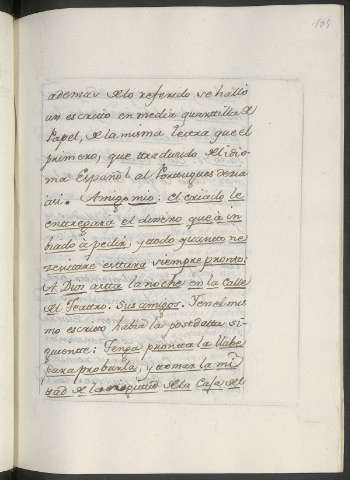 105
ademas de lo referido se halló
un escrito en media quartilla de
Papel, de la misma letra que el
primero, que traducido del idio-
ma Español al Portugues decia
asi. Amigo mio: el criado le
entregará el dinero que à in
biado à pedir, y todo quanto ne
zecitare estará siempre pronto.
A Dios asta la noche en la Calle
del Teatro. Sus amigos. Y en el mis
mo escrito habia la postdata si-
guiente: Tenga pronta la llabe
para probarla, y tomar la mi
tad de la de la Casa del